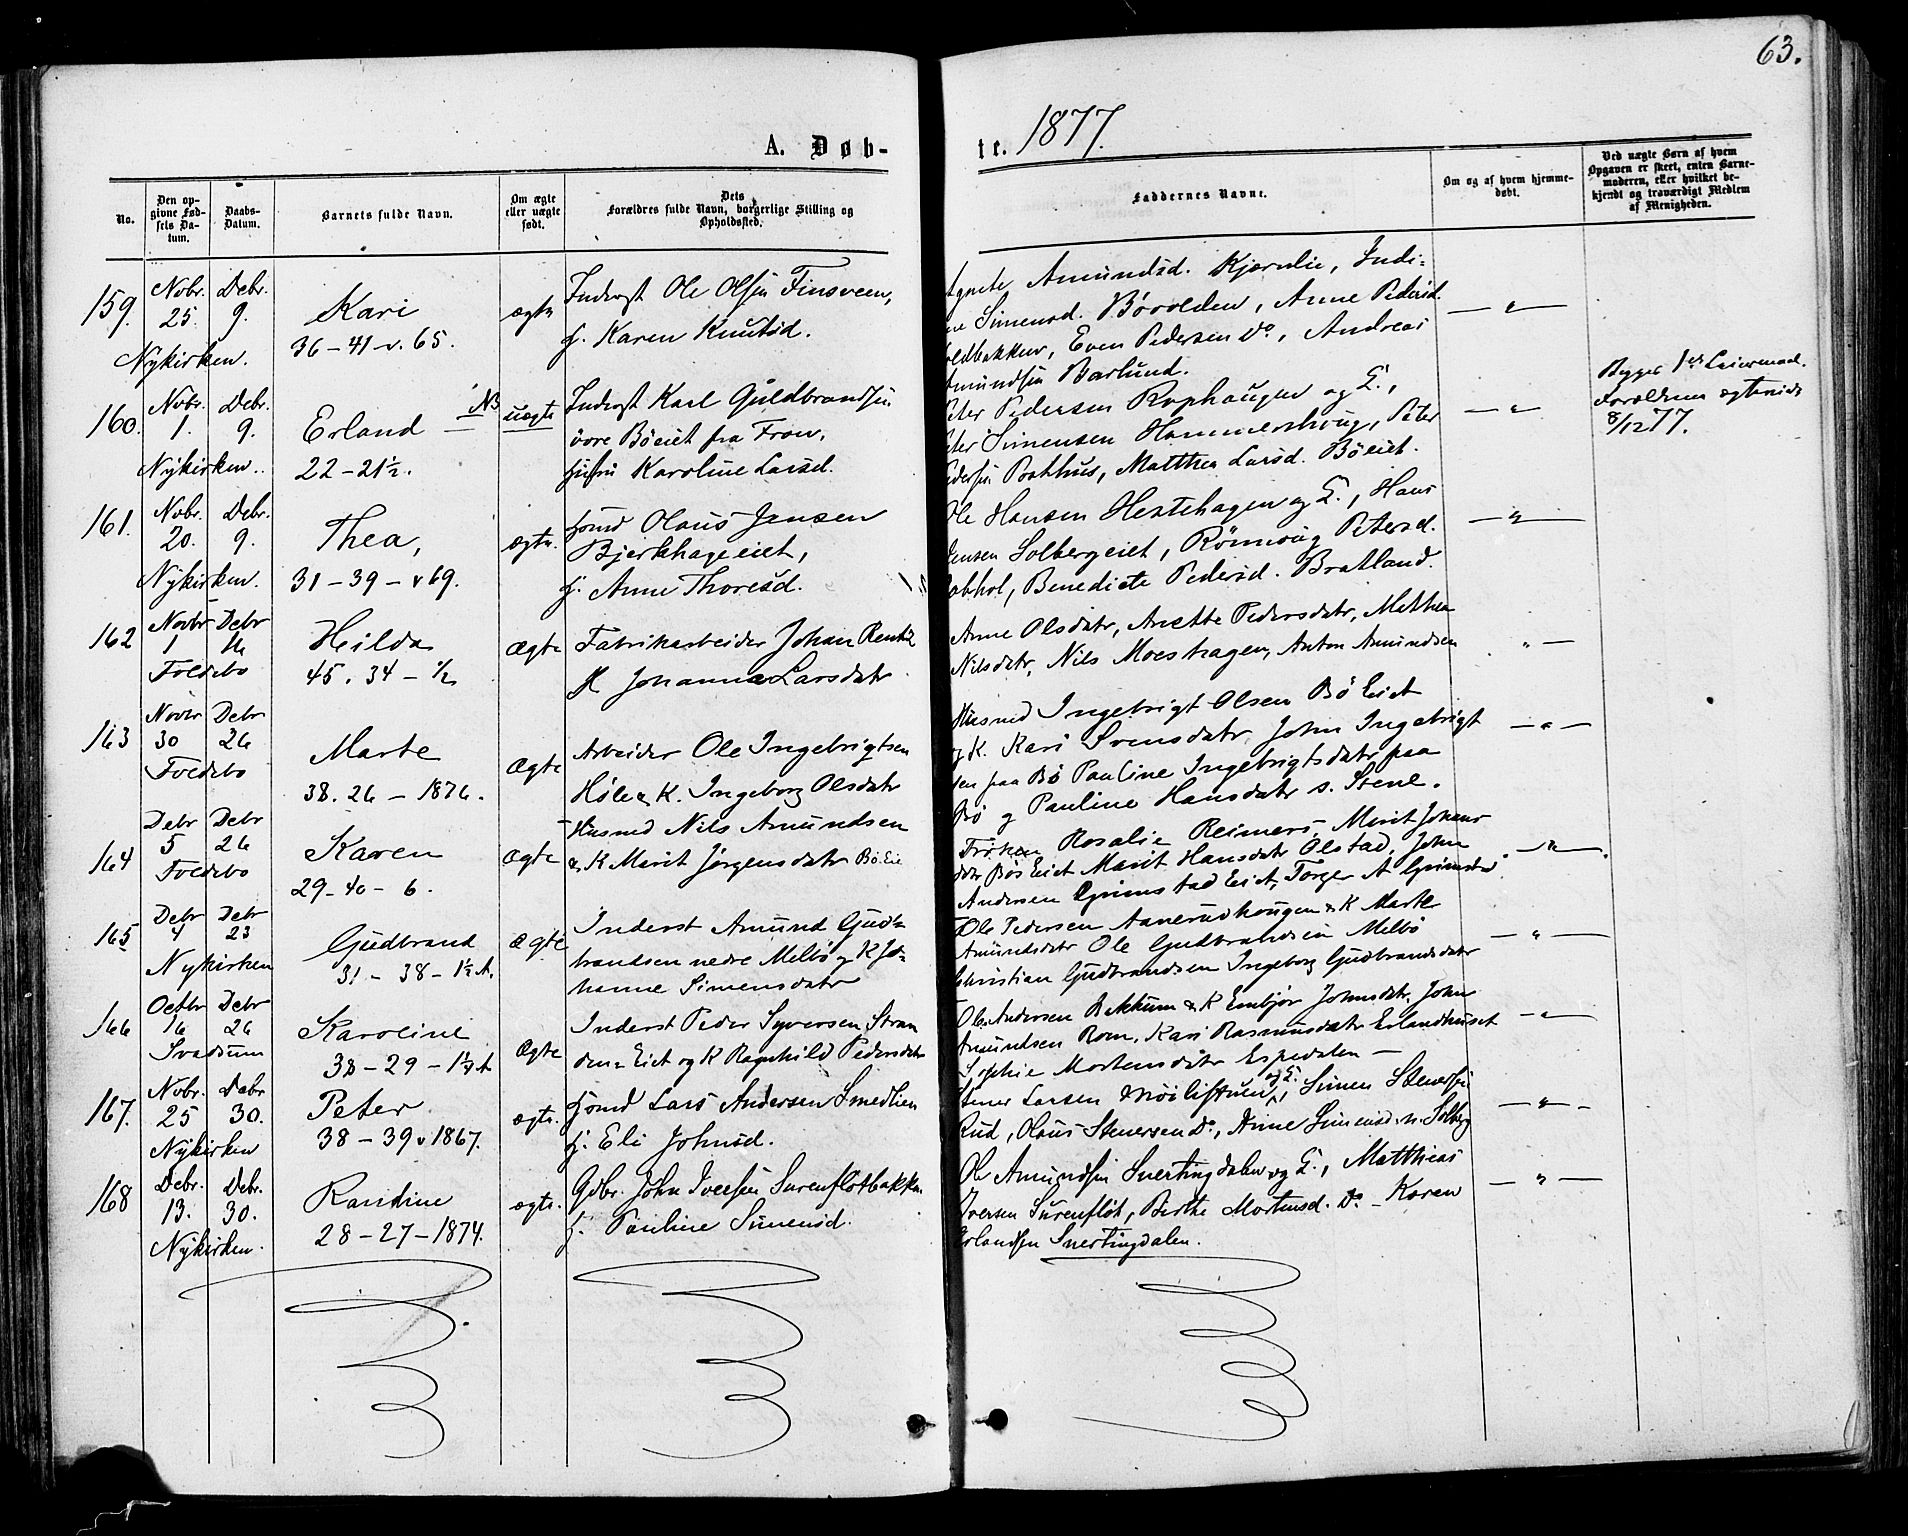 63.
A. Døb-
te. 1877.
No.
Den op-
givne Fød-
sels Da-
tum.
Daabs-
Datum.
Barnets fulde Navn.
Om ægte
eller uægte
født.
Dets
Forældres fulde Navn, borgerlige Stilling og
Opholdssted.
Faddernes Navne.
Om og af hvem hjemme-
døbt.
Ved uægte Børn af hvem
Opgaven er skeet, enten Barne-
moderen, eller hvilket be-
kjendt og troværdigt Medlem
af Menigheden.
159.
Nobr. Debr.
25. 9.
Nykirken.
Kari
36 – 41 – v. 65.
ægte
Inderst Ole Olsen Finsveen,
h. Karen Knutsd.
Agnete Amundsd. Kjærnlie, Indi-
Simensd. Børvolden, Anne Pedersd.
Even Pedersen Do, Andreas
Amundsen Barlund.
— " —
160.
Nobr. Debr.
1. 9.
Nykirken.
Erland – NB
22 – 21½.
uægte
Inderst Karl Guldbrandsen
øvre Bøeiet fra Fron,
Karoline Larsd.
Peter Pedersen Rophaugen og L.,
Simensen Hammershoug, Peter
Pedersen Bakhus, Matthea Larsd. Bøeiet.
— " —
Begges 1ste Leiermaal.
Forældrene ægteviede
8/12 77.
161.
Nobr. Debr.
20. 9.
Nykirken.
Thea,
31 – 39 – v 69.
ægte.
Hsmd Olaus Jensen
Bjerkhageeiet,
h. Anne Thoresd.
Ole Hansen Hestehagen og L., Hans
Jensen Solbergeiet, Rønnoug Petersd.
Benedicte Pedersd. Bratland.
— " —
162
Novbr Debr
1 16
Foldebo
Hilda
45. 34 – ½
Ægte
Fabrikarbeider Johan Rentz
K Johanna Larsdatr
Anne Olsdatr, Anette Pedersdatr, Mathea
Nilsdatr, Nils Moeshagen, Anton Amundsen
" —
163
Novbr Debr
30 26
Foldebo
Marte
38. 26 – 1876.
Ægte
Arbeider Ole Ingebrigtsen
Høle & K. Ingeborg Olsdatr
Husmd Ingebrigt Olsen Bø Eiet
og K. Kari Svensdatr, John Ingebrigt
sen paa Bø Pauline Ingebrigtsdatr paa
Bø og Pauline Hansdatr s. Stene.
— " —
164
Debr Debr
5 26
Foldebo
Karen
29 – 40 – 6.
Ægte
Husmd Nils Amundsen
& K Marit Jørgensdatr Bø. Eie
Frøken Rosalie Reimers, Marit Johans
datr Bøs Eiet Marit Hansdatr Olstad, John
Andersen Grimstad Eiet, Torger A Grimstad.
— " —
165
Debr Debr
4 23
Nykirken
Gudbrand
31 – 38 – 1½ A.
Ægte
Inderst Amund Gud-
brandsen nedre Melbø og K Jo-
hanne Simensdatr
Ole Pedersen Aanerudhougen & K Marte
Amundsdatr Ole Gudbrandsen Melbø
Christian Gudbrandsen Ingeborg Gudbrandsdatr
— " —
166
Octbr Debr
16 26
Svadsum
Karoline
38 – 29 – 1½ A
Ægte
Inderst Peder Syversen Stran
den-Eiet og K Ragnhild Pedersdatr
Ole Andersen Bekkum & K Embjør Johnsdatr. John
Amundsen Rom, Kari Rasmusdatr Erlandhuset
Sophie Mortensdatr Espedalen –
— " —
167.
Nobr. Debr
25 30.
Nykirken
Peter
38 – 39 v 1867.
ægte.
Hsmd Lars Andersen Smedlien
h. Eli Johnsd.
Stener Larsen og L., Simen Stenersen
Rud, Olaus Stenersen Do, Anne Simensd. n. Solberg
— " —
168
Debr. Debr.
13. 30.
Nykirken.
Randine
28 – 27 – 1874.
ægte.
Gdbr. John Iversen Surenfløtbakken
h. Pauline Simensd.
Ole Amundsen Svertingdalen og L., Matthias
Iversen Surenfløt, Birthe Mortensd. Do – Karen
Erlandsen Svertingdalen.
— " —